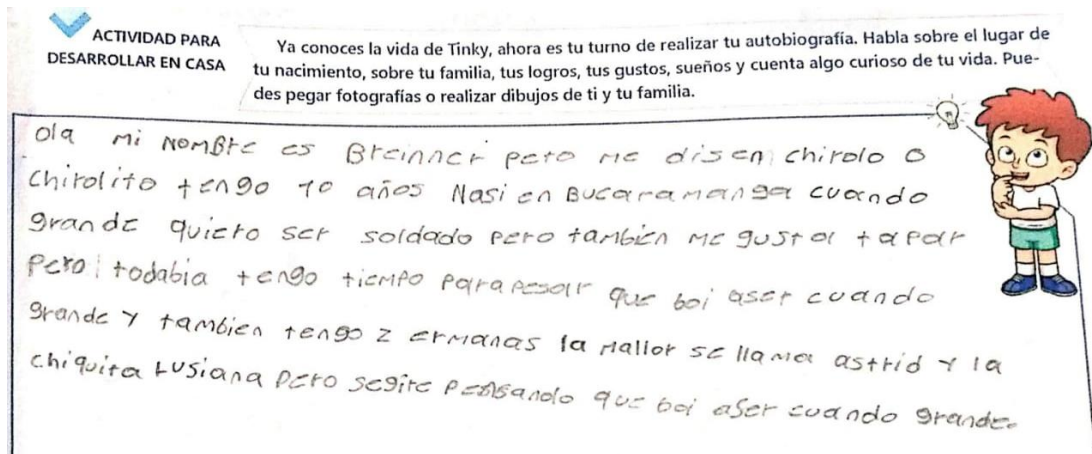 ACTIVIDAD PARA
DESARROLLAR EN CASA
Ya conoces la vida de Tinky, ahora es tu turno de realizar tu autobiografía. Habla sobre el lugar de
tu nacimiento, sobre tu familia, tus logros, tus gustos, sueños y cuenta algo curioso de tu vida. Pue-
des pegar fotografías o realizar dibujos de ti y tu familia.
ola mi nombre es Breinner pero me disen chirolo o
chirolito tengo 10 años Nasi en Bucaramanga cuando
grande quiero ser soldado pero tambien me gusta tapar
pero todabia tengo tiempo para pesar que boi aser cuando
grande y tambien tengo 2 ermanas la mallor se llama astrid y la
chiquita Lusiana pero segire pensando que boi aser cuando grande.